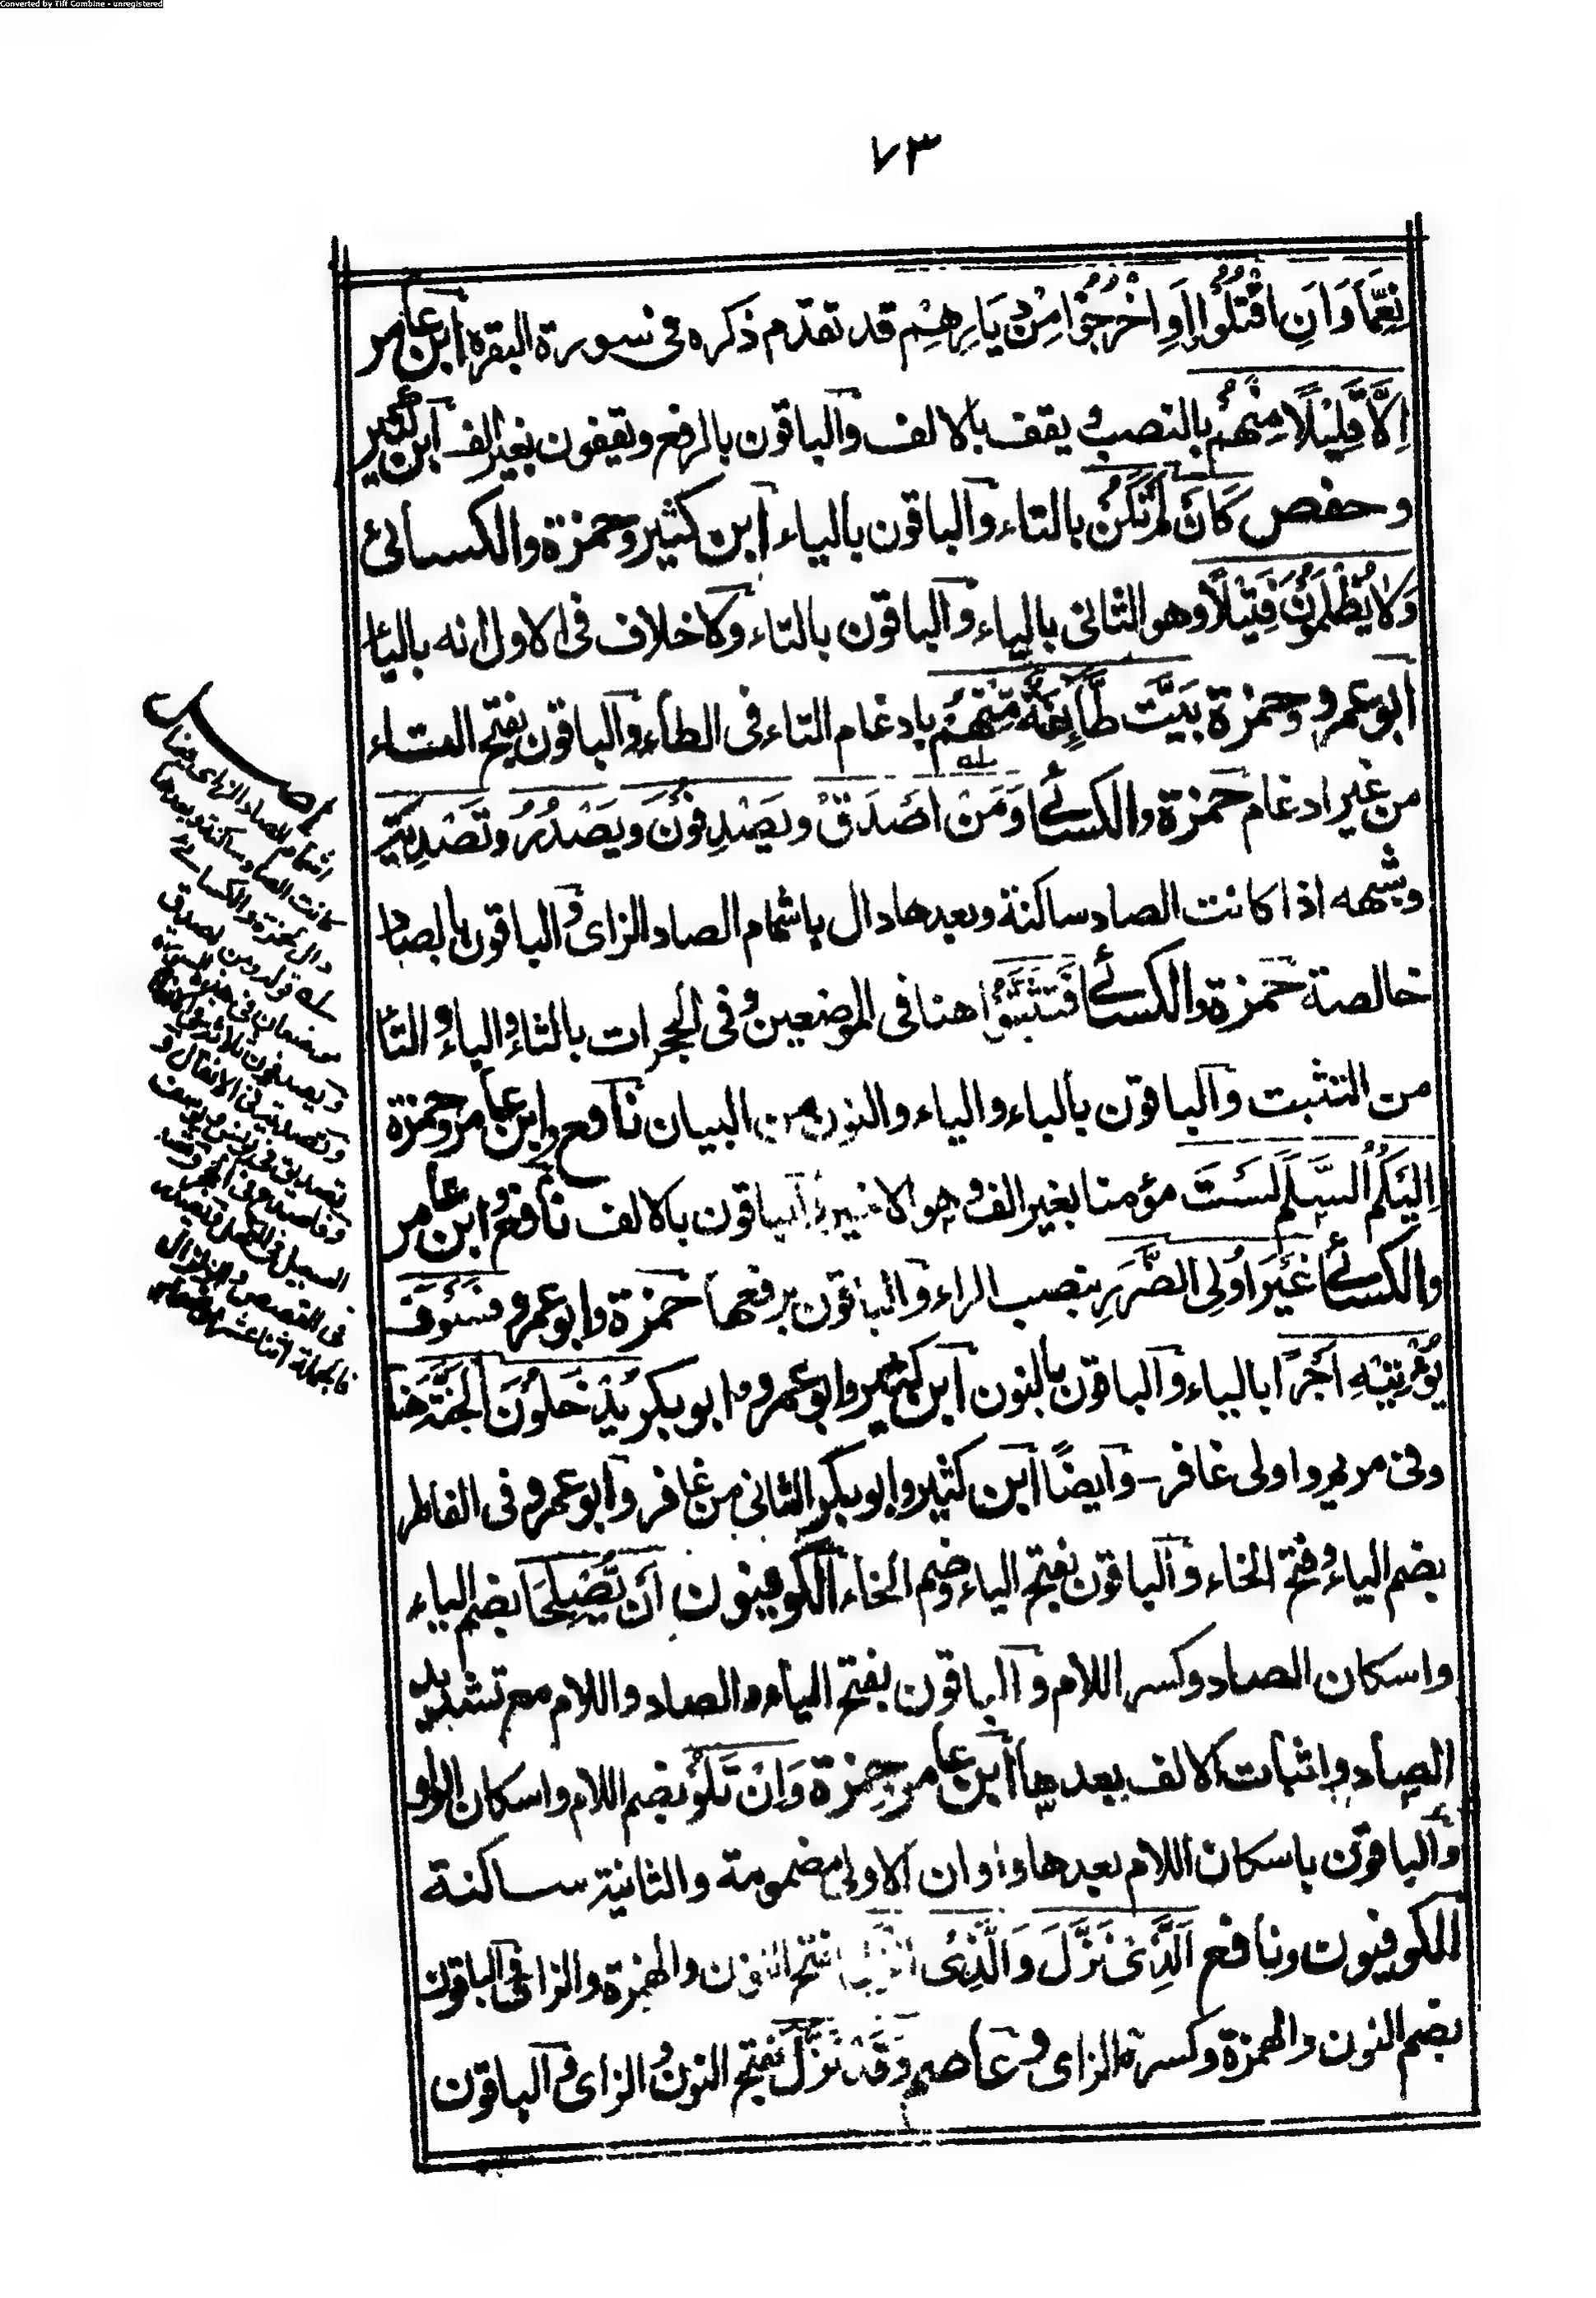 Converted by Tiff Combine - unregistered
٧٣
نِعِمَّا وَاَنِ اقْتُلُوْا اَوِ اخْرُجُوْا مِنْ دِيَارِهِمْ قد تقدم ذكره فى سورة البقرة ابن عامر
اِلَّا قَلِيْلًا مِنْهُمْ بالنصب و يقف بالالف والباقون بالرفع ويقفون بغير الف ابن كثير
وحفص كَاَنْ لَمْ تَكُنْ بالتاء والباقون بالياء ابن كثير وحمزة والكسائى
وَلَا يُظْلَمُوْنَ فَتِيْلًا وهو الثانى بالياء والباقون بالتاء ولا خلاف فى الاول انه بالياء
ابو عمرو وحمزة بَيَّتَ طَّائِفَةٌ مِّنْهُمْ بادغام التاء فى الطاء والباقون بفتح التاء
من غير ادغام حمزة والكسائى وَمَنْ اَصْدَقُ ويَصْدِفُوْنَ ويَصْدُرُ وتَصْدِيَةً
وشبهه اذا كانت الصاد ساكنة وبعدها دال باشمام الصاد الزاى والباقون بالصاد
خالصة حمزة والكسائى فَتَثَبَّتُوْا هنا فى الموضعين وفى الحجرات بالثاء والباء والتاء
من التثبت والباقون بالباء والياء والنون من البيان نافع وابن عامر وحمزة
اِلَيْكُمُ السَّلَمَ لَسْتَ مؤمنا بغير الف وهو الاخير والباقون بالالف نافع وابن عامر
والكسائى غَيْرَ اُولِى الضَّرَرِ بنصب الراء والباقون برفعها حمزة وابو عمرو فَسَوْفَ
يُؤْتِيْهِ اَجْرًا بالياء والباقون بالنون ابن كثير وابو عمرو وابو بكر يُدْخَلُوْنَ الْجَنَّةَ هنا
وفى مريم واولى غافر - وايضًا ابن كثير وابو بكر الثانى من غافر وابو عمرو فى الفاطر
بضم الياء وفتح الخاء والباقون بفتح الياء وضم الخاء الكوفيون اَنْ يُّصْلِحَا بضم الياء
واسكان الصاد وكسر اللام والباقون بفتح الياء والصاد واللام مع تشديد
الصاد واثبات الالف بعدها ابن عامر وحمزة وَاِنْ تَلُوْ بضم اللام واسكان الواو
والباقون باسكان اللام بعدها واوان الاولى مضمومة والثانية ساكنة
الكوفيون ونافع الَّذِىْ نَزَّلَ وَالَّذِىْ اَنْزَلَ بفتح النون والهمزة والزاى والباقون
بضم النون والهمزة وكسرة الزاى وعاصم وَقَدْ نَزَّلَ بفتح النون والزاى والباقون
اشمام الصاد الزاى
كانت الصاد ساكنة وبعدها
دال لحمزة والكسائى
له قوله ومن اصدق
موضعان فى هذه السورة
ويصدفون ثلاثة فى الانعام
وتصدية فى الانفال و
تصديق فى يونس ويوسف
وفاصدع فى الحجر وقصد
السبيل فى النحل ويصدر
فى القصص والزلزال
فالجملة اثنا عشر